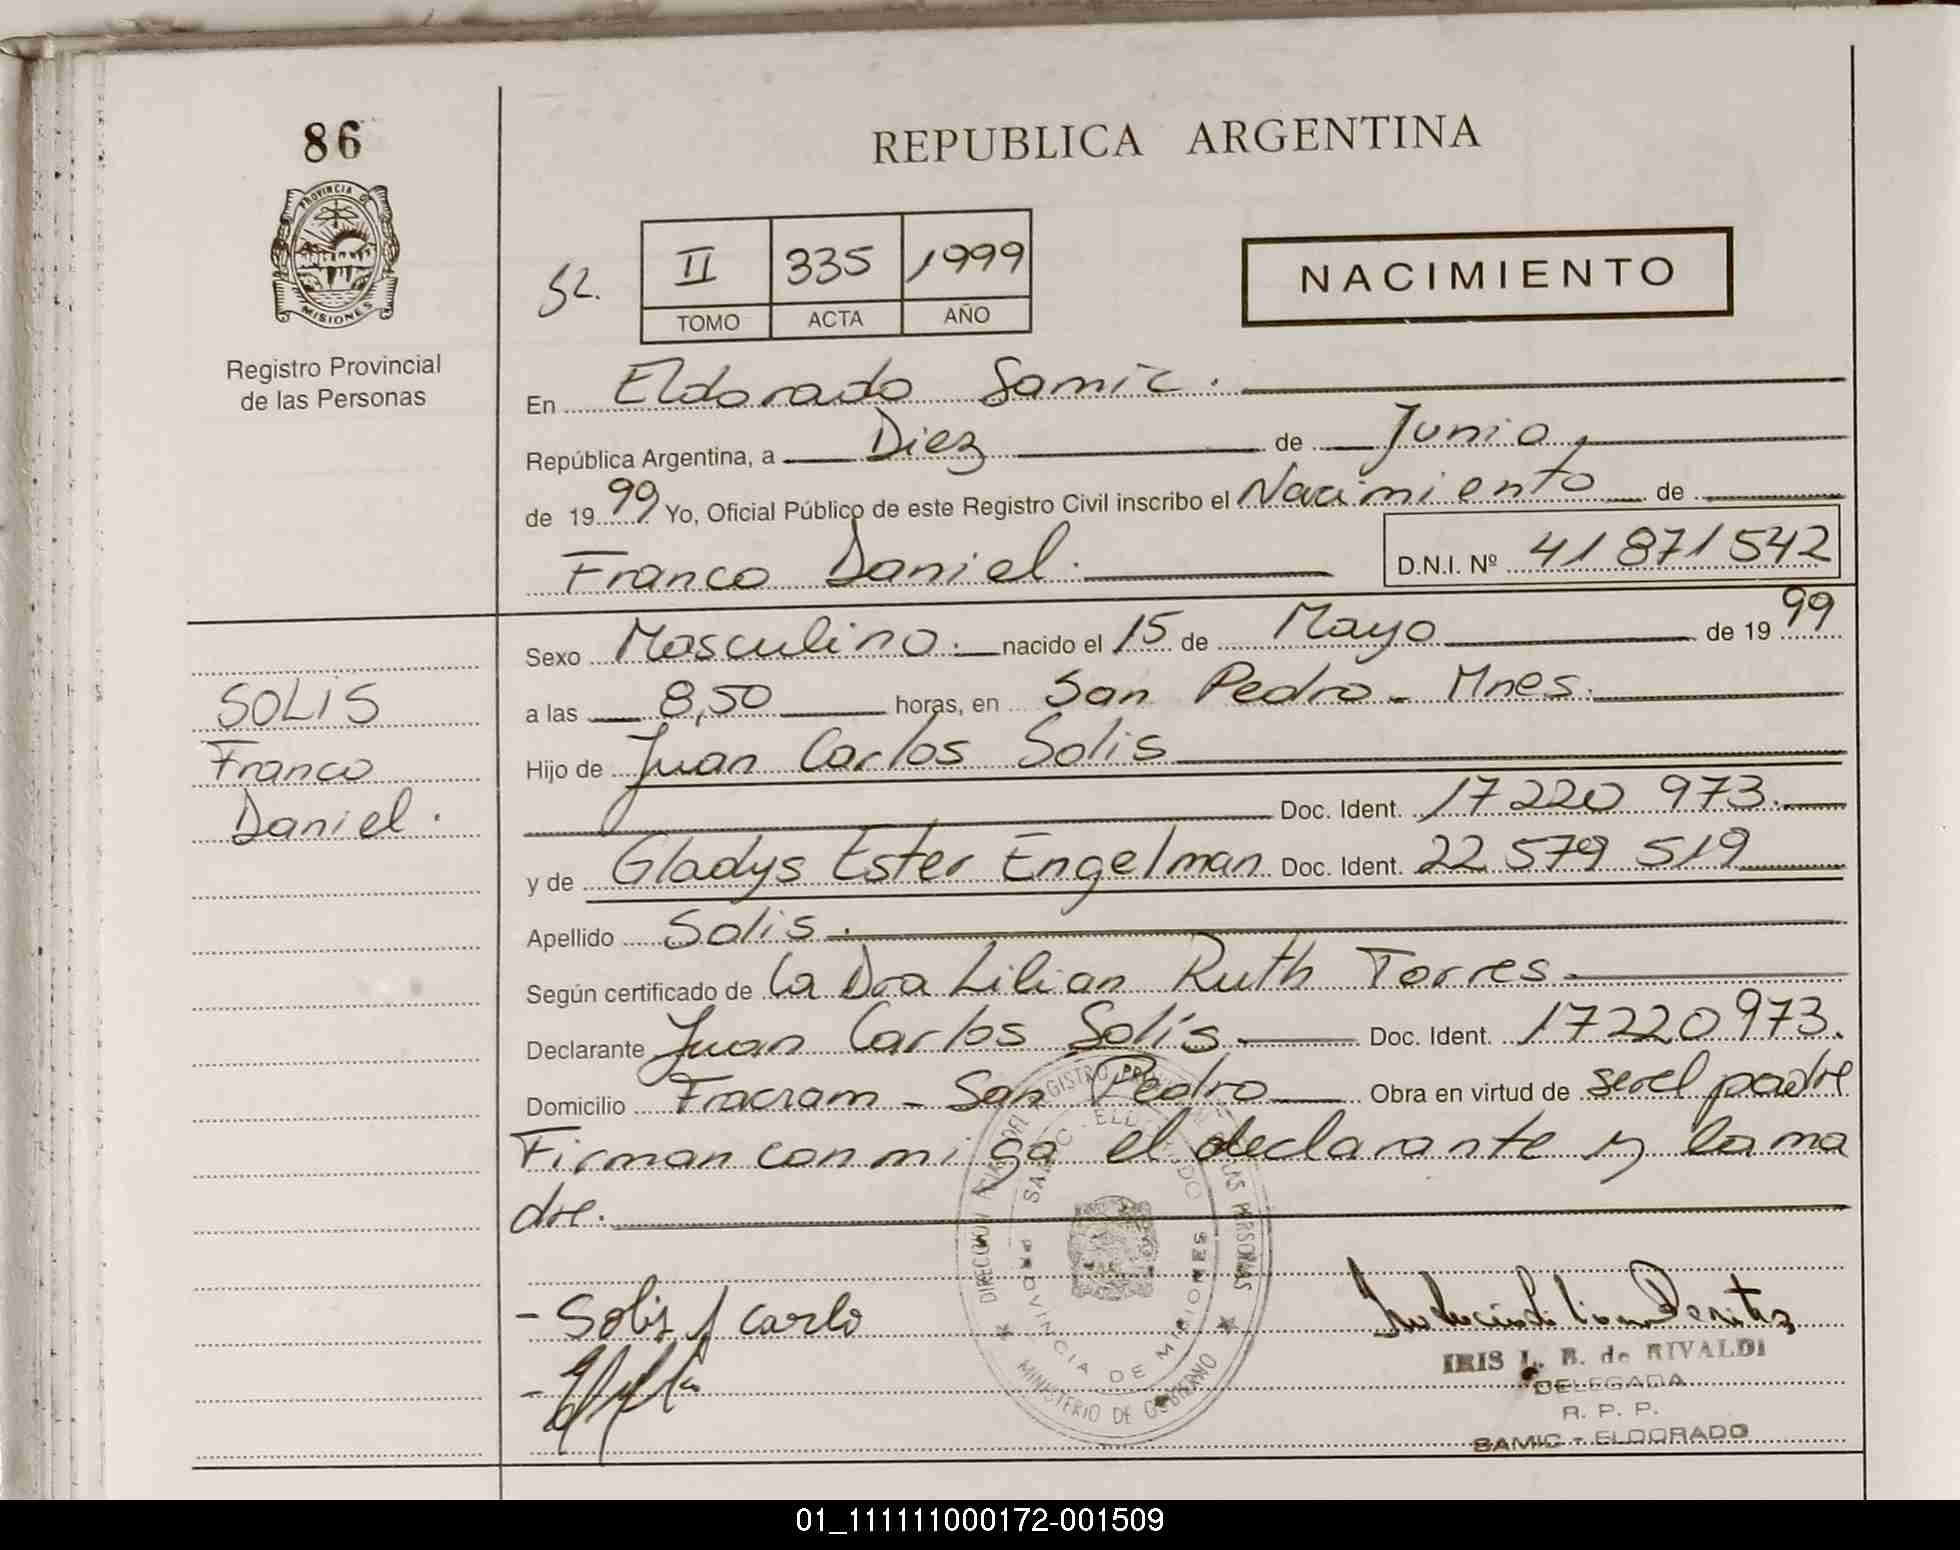 86
REPUBLICA ARGENTINA
PROVINCIA DE
MISIONES
Registro Provincial
de las Personas
II 335 1999
TOMO ACTA AÑO
NACIMIENTO
En Eldorado Samic.
República Argentina, a Diez de Junio
de 1999 Yo, Oficial Público de este Registro Civil inscribo el Nacimiento de
Franco Daniel. D.N.I. Nº 41 871 542
Sexo Masculino. nacido el 15 de Mayo de 1999
a las 8,50 horas, en San Pedro - Mnes.
SOLIS
Franco
Daniel.
Hijo de Juan Carlos Solis
Doc. Ident. 17 220 973.
y de Gladys Ester Engelman Doc. Ident. 22 579 519
Apellido Solis.
Según certificado de la Dra Lilian Ruth Torres
Declarante Juan Carlos Solís Doc. Ident. 17220973.
Domicilio Fracram - San Pedro Obra en virtud de ser el padre
Firman conmigo el declarante y la ma
dre.
- Solis J Carlo
IRIS L. B. de RIVALDI
DELEGADA
R. P. P.
SAMIC - ELDORADO
PROVINCIA DE MISIONES
MINISTERIO DE GOBIERNO
01_111111000172-001509